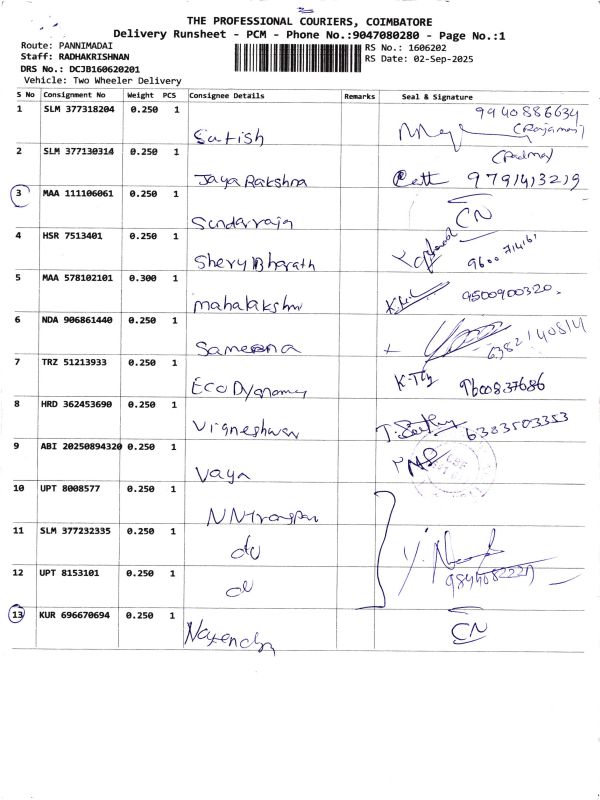 THE PROFESSIONAL COURIERS, COIMBATORE
Delivery Runsheet - PCM - Phone No.:9047080280 - Page No.:1
Route: PANNIMADAI
RS No.: 1606202
Staff: RADHAKRISHNAN
RS Date: 02-Sep-2025
DRS No.: DCJB160620201
Vehicle: Two Wheeler Delivery
S No Consignment No Weight PCS Consignee Details Remarks Seal & Signature
1 SLM 377318204 0.250 1 Satish 9940886634
2 SLM 377130314 0.250 1 Jaya Rakshna (Padma) 9791413219
3 MAA 111106061 0.250 1 Sundarraja CN
4 HSR 7513401 0.250 1 Shery Bharath 9600714161
5 MAA 578102101 0.300 1 mahalakshmi 9500900320.
6 NDA 906861440 0.250 1 Sameena 6382140814
7 TRZ 51213933 0.250 1 9600837686
8 HRD 362453690 0.250 1 Vigneshwar 6383503353
9 ABI 20250894320 0.250 1
10 UPT 8008577 0.250 1
11 SLM 377232335 0.250 1 do
12 UPT 8153101 0.250 1 do
13 KUR 696670694 0.250 1 CN